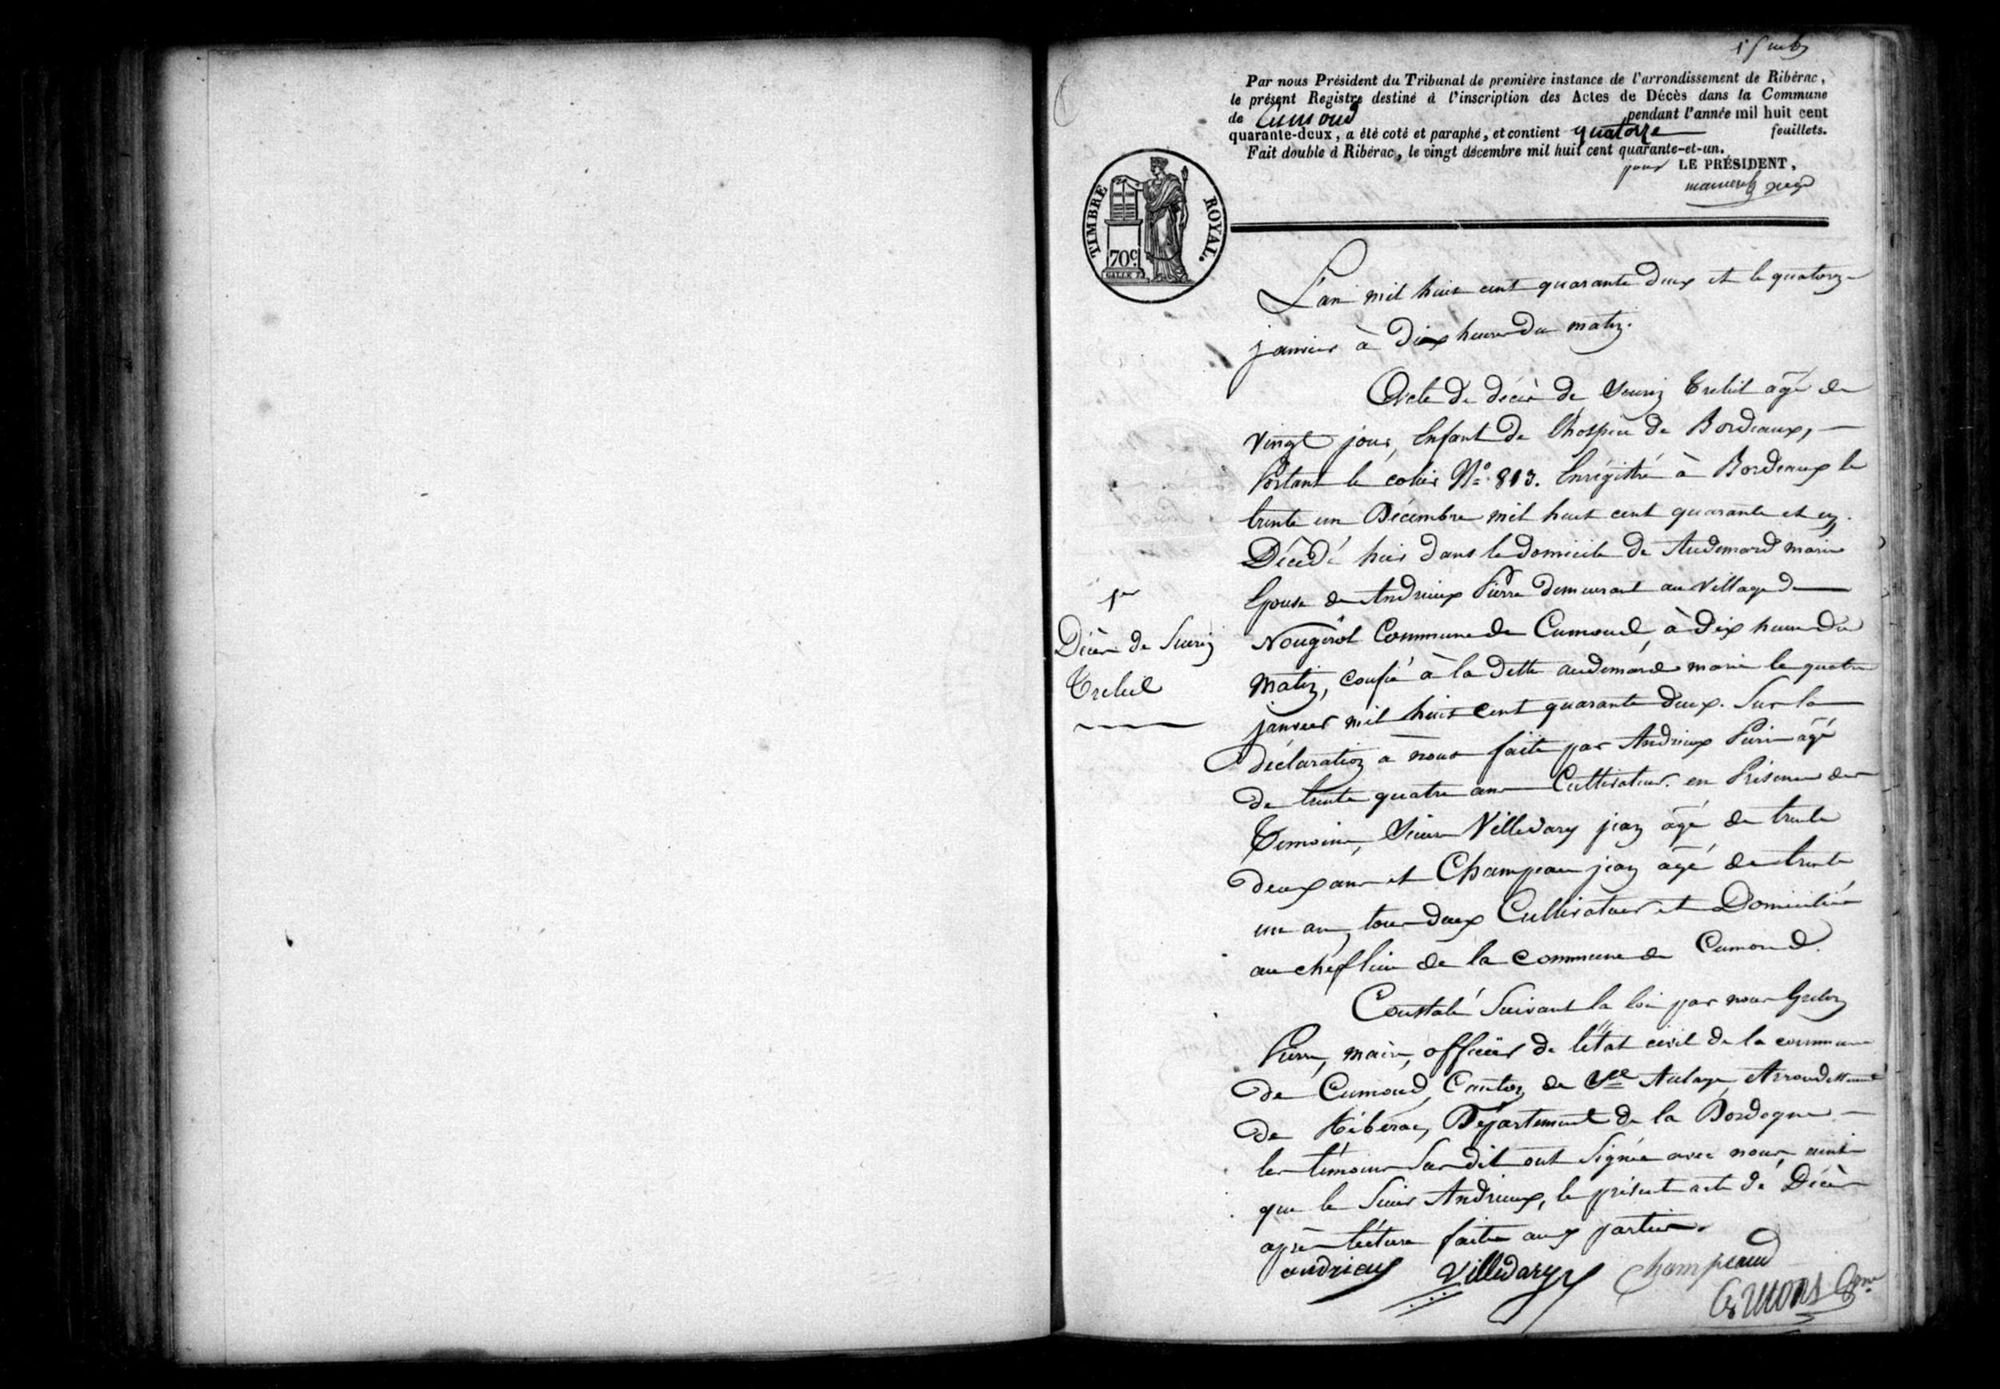 Par nous Président du Tribunal de première instance de l'arrondissement de Ribérac,
le présent Registre destiné à l'inscription des Actes de Décès dans la Commune
de Cumond pendant l'année mil huit cent
quarante-deux, a été coté et paraphé, et contient quatorze feuillets.
Fait double à Ribérac, le vingt décembre mil huit cent quarante-et-un.
pour LE PRÉSIDENT,
TIMBRE ROYAL.
70c.
L'an mil huit cent quarante deux et le quatorze
janvier à Dix heures du matin.
Acte de décès de Treliel âgé de
vingt jours, Enfant de l'hospice de Bordeaux,
Portant le colier No. 813. Enrégistré à Bordeaux le
trente un Décembre mil huit cent quarante et un.
Décédé hier dans le domicile de Audemard marie
Epouse de Andrieux Pierre demeurant au village de
Nougérol Commune de Cumond, à dix heures du
matin, confié à la dette audemard marie le quatre
janvier mil huit cent quarante deux. Sur la
déclaration à nous faite par Andrieux Pierre âgé
de trente quatre ans Cultivateur. en Présence des
Temoins, Sieurs Villedary jean âgé de trente
deux ans et Champeau jean âgé de trente
un ans, tous deux Cultivateurs et Domiciliés
au chef lieu de la commune de Cumond.
1er
Décès de
Treliel
Constaté Suivant la loi par nous
Pierre, maire, officier de l'état civil de la commune
de Cumond, Canton de Ste Aulaye, Arrondissement
de Ribérac, Département de la Dordogne
les témoins Susdit ont Signés avec nous, ainsi
que le Sieur Andrieux, le présent acte de Décès
après lecture faite aux parties.
andrieux Villedary Champeaud